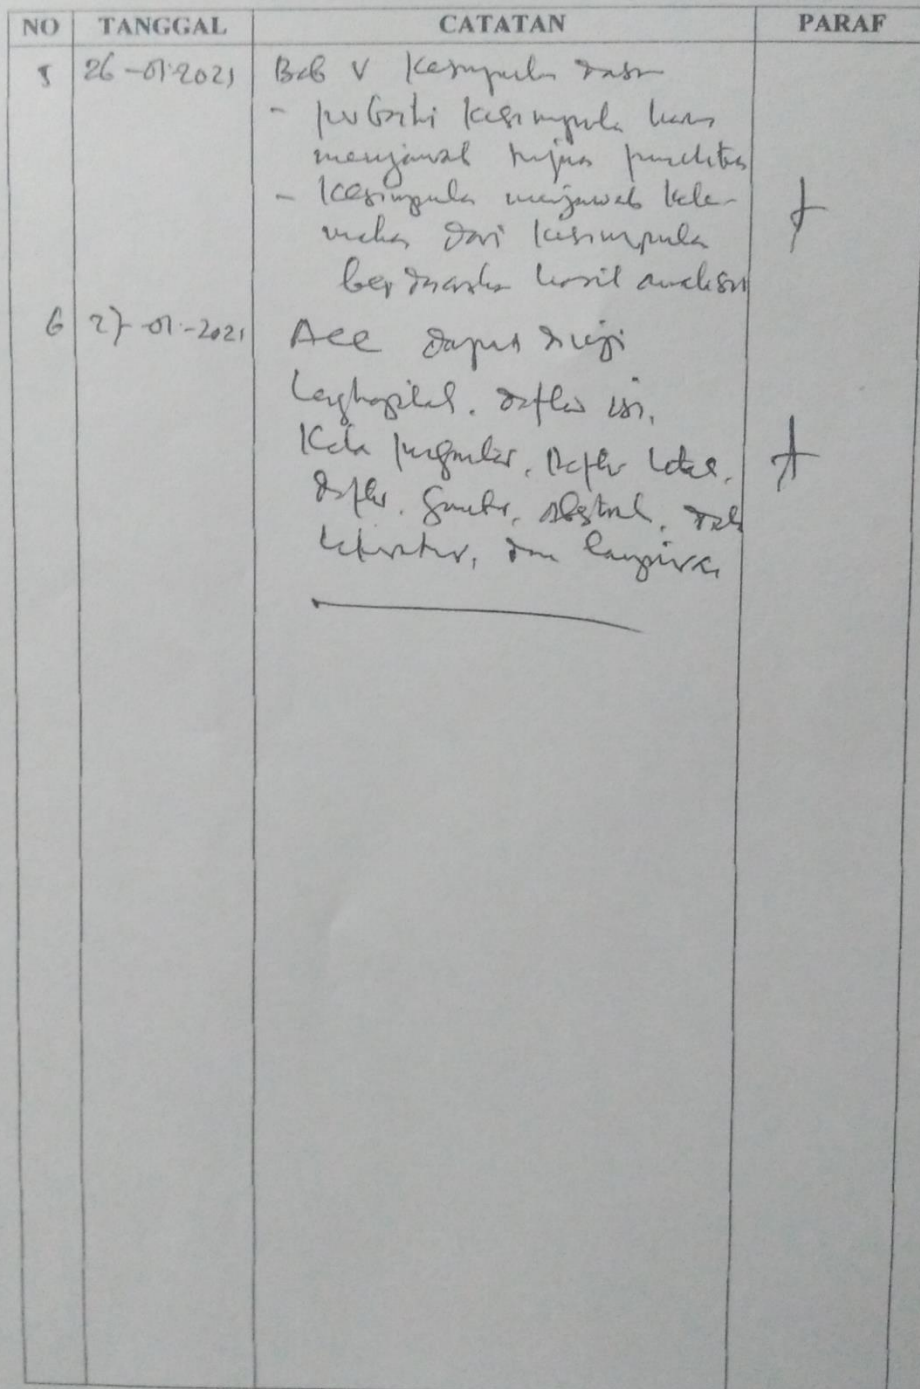 NO TANGGAL CATATAN PARAF
5 26-01-2021 Bab V Kesimpulan
- perbaiki kesimpulan harus
menjawab tujuan penelitian
- Kesimpulan menjawab
dari kesimpulan
berdasarkan hasil analisis
6 27-01-2021 Acc dapat diuji
Lengkapilah. daftar isi,
Kata pengantar, Daftar tabel,
daftar. Gambar, Abstrak,
literatur, dan lampiran